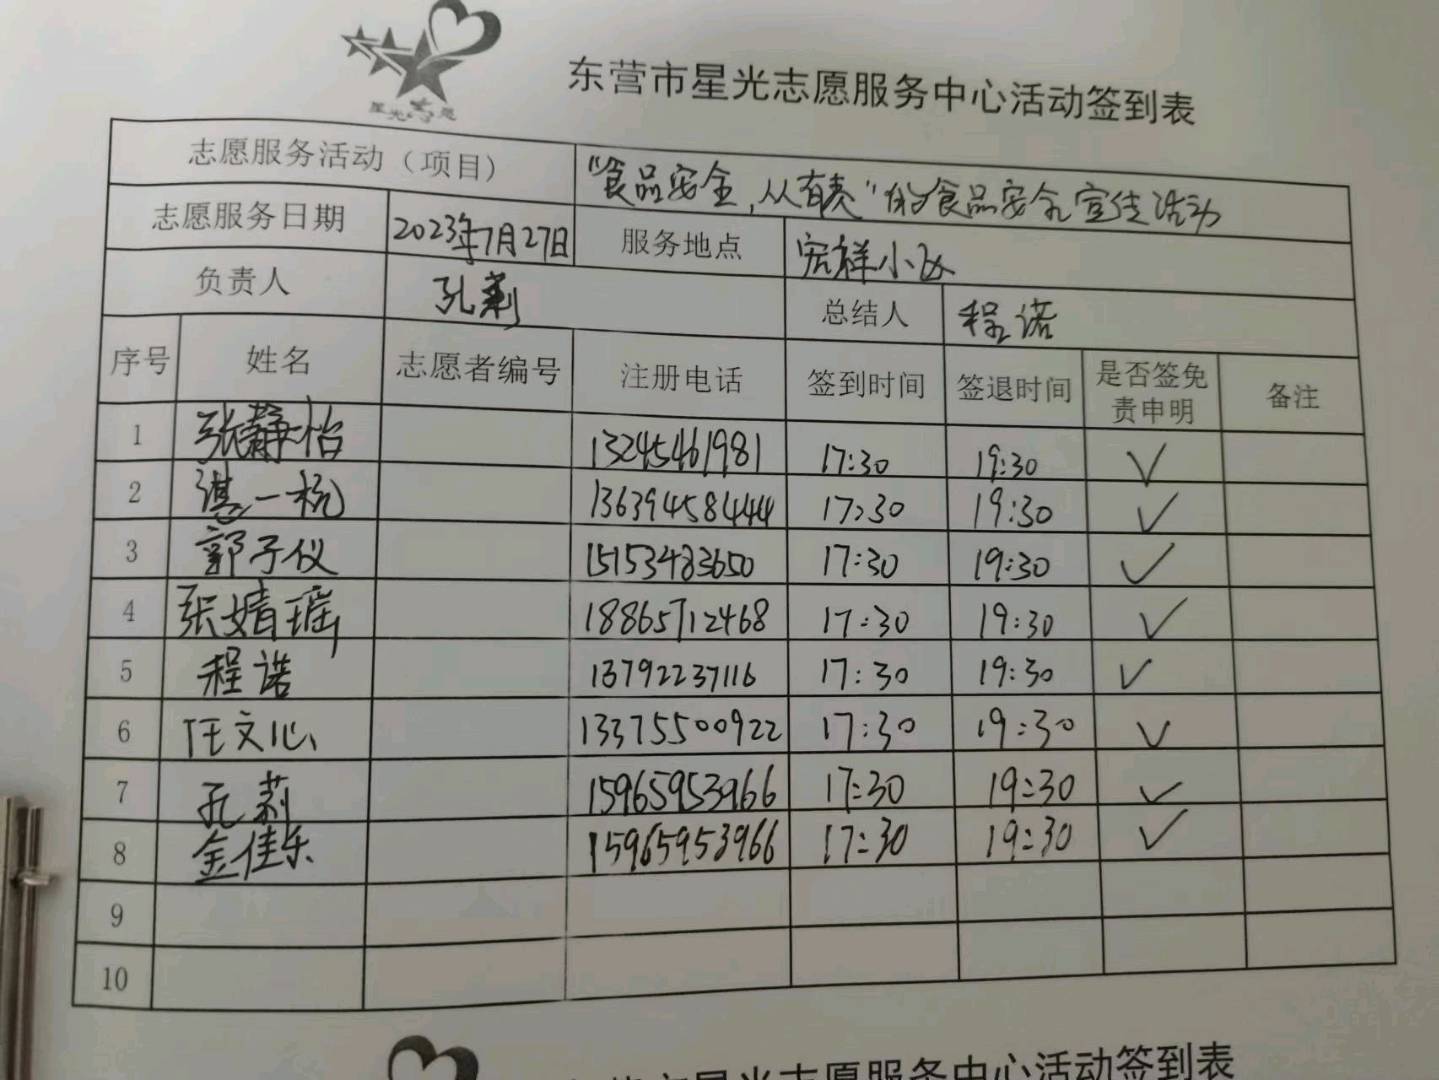 星光志愿
东营市星光志愿服务中心活动签到表
志愿服务活动（项目） "食品安全,从有责"的食品安全宣传活动
志愿服务日期 2023年7月27日 服务地点 宏祥小区
负责人 孔莉 总结人 程诺
序号 姓名 志愿者编号 注册电话 签到时间 签退时间 是否签免责申明 备注
1 张静怡 13245461981 17:30 19:30 ✓
2 谌一杭 13639458444 17:30 19:30 ✓
3 郭子仪 15153483650 17:30 19:30 ✓
4 张婧瑶 18865712468 17:30 19:30 ✓
5 程诺 13792237116 17:30 19:30 ✓
6 任文心 13375500922 17:30 19:30 ✓
7 孔莉 15965953966 17:30 19:30 ✓
8 金佳乐 15965953966 17:30 19:30 ✓
9
10
东营市星光志愿服务中心活动签到表